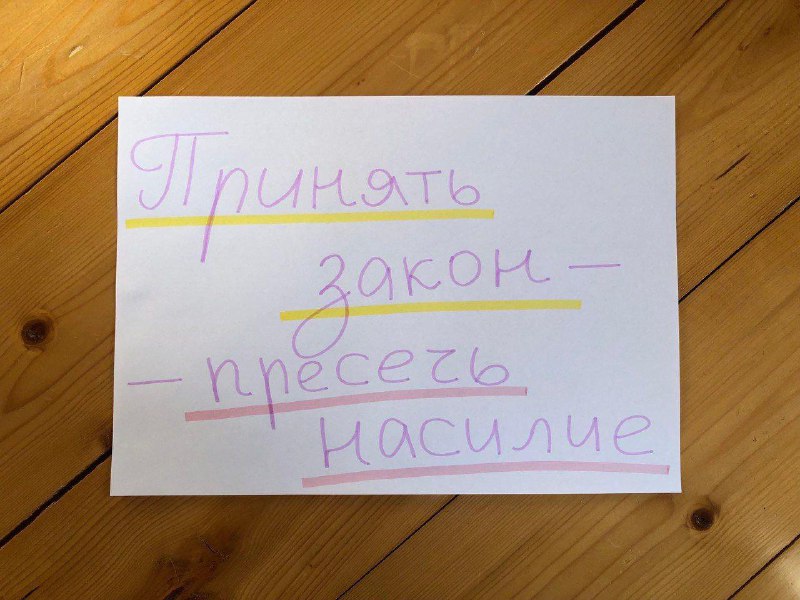 Принять
закон –
– пресечь
насилие